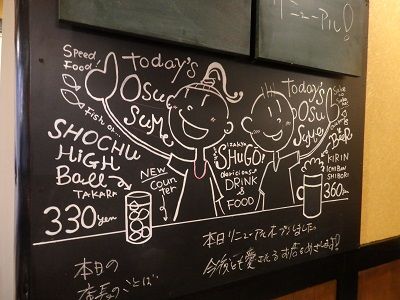 リニューアル!
Speed
Food!
today's
Osu
Sume
Fish or...
SHOCHU
HiGH
Ball
TAKARA
330yen
NEW
Counter
IZAKYA
SHUGO!
DRINK
&
FOOD
today's
OSU
Sume
BEER
KIRIN
ICHIBAN
SHIBORI
360yen
本日の
店長のことば
本日リニューアルオープンしました
今後とも愛されるお店をめざします!